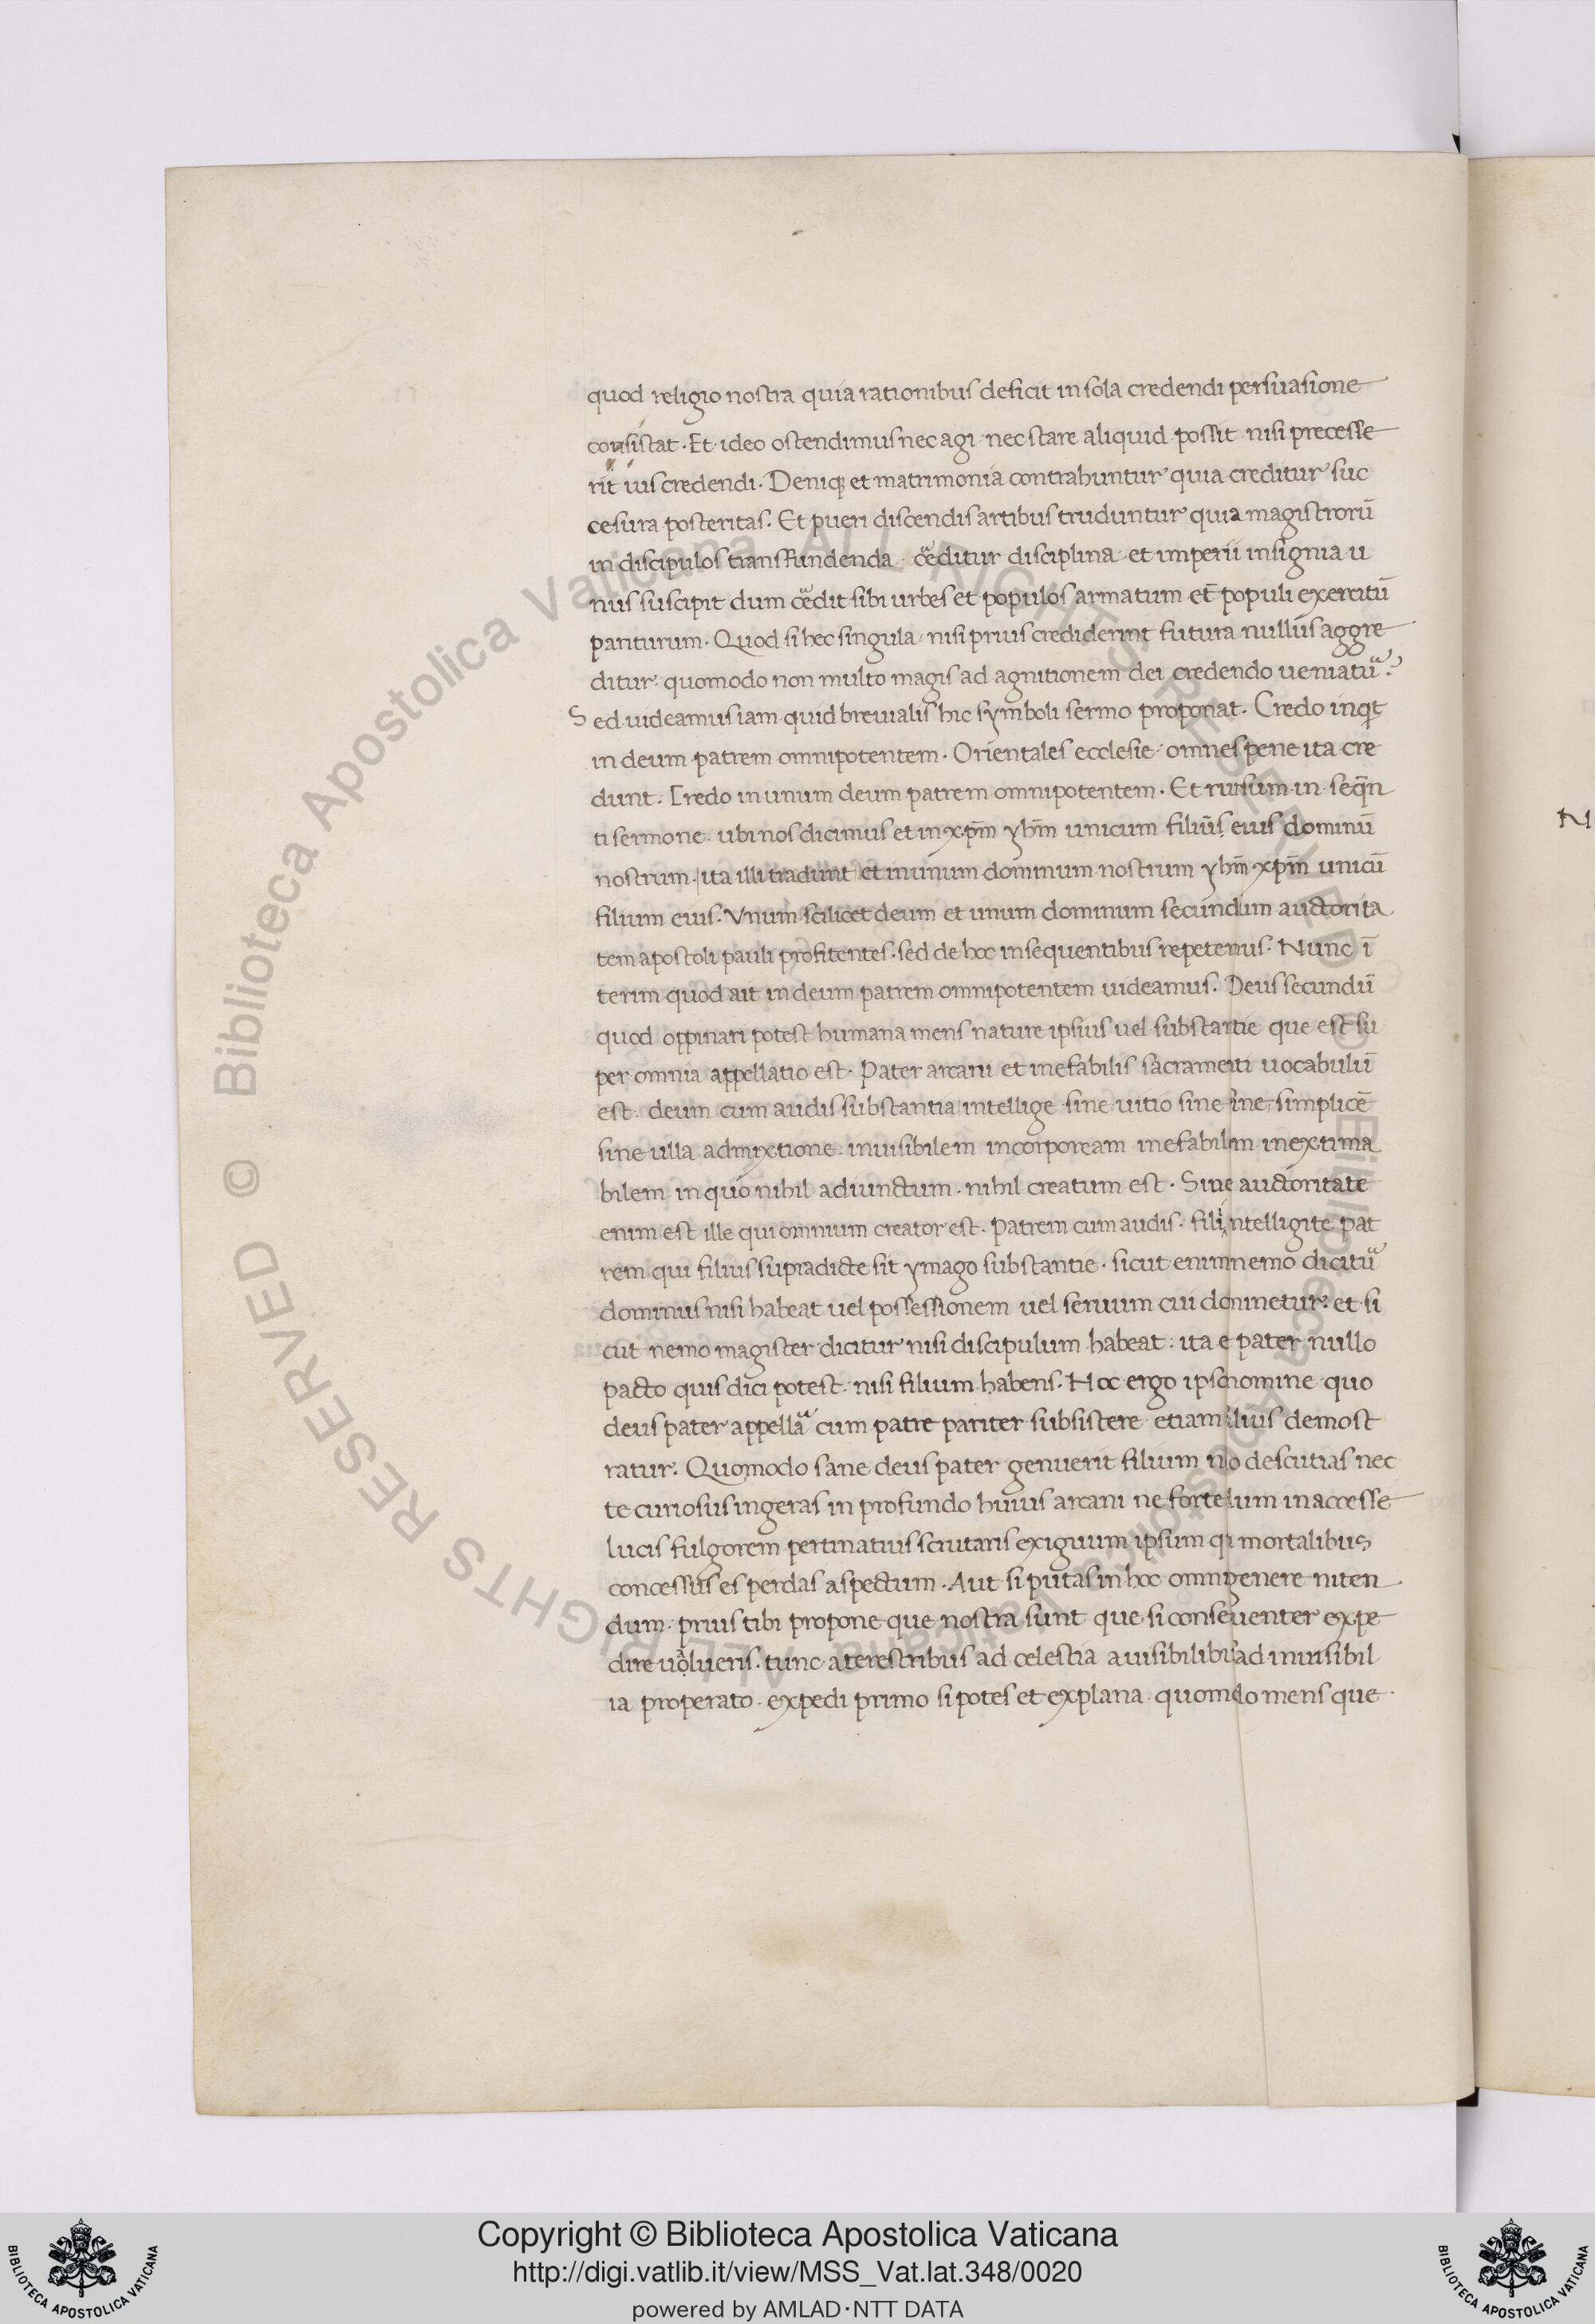 quod religio nostra quia rationibus deficit in sola credendi persuasione
consistat. Et ideo ostendimus nec agi nec stare aliquid possit nisi precesse
rit ius credendi. Deniq; et matrimonia contrahuntur quia creditur suc
cesura posteritas. Et pueri discendis artibus truduntur quia magistrorū
in discipulos transfundenda creditur disciplina et imperii insignia u
nus suscipit dum credit sibi urbes et populos armatum et populi exercitū
pariturum. Quod si hec singula nisi prius crediderint futura nullus aggre
ditur quomodo non multo magis ad agnitionem dei credendo ueniatur?
Sed uideamus iam quid breuialis hic symboli sermo proponat. Credo inqt
in deum patrem omnipotentem. Orientales ecclesie omnes pene ita cre
dunt. Credo in unum deum patrem omnipotentem. Et rursum in seqn
ti sermone ubi nos dicimus et in xp̄m yhm̄ unicum filiūs eius dominū
nostrum ita illi tradunt et in unum dominum nostrum yhm̄ xp̄m unicū
filium eius. Vnum scilicet deum et unum dominum secundum auctorita
tem apostoli pauli profitentes. sed de hoc in sequentibus repetemus. Nunc ī
terim quod ait in deum patrem omnipotentem uideamus. Deus secundū
quod oppinari potest humana mens nature ipsius uel substantie que est su
per omnia appellatio est. Pater arcani et inefabilis sacramenti uocabulū
est. deum cum audis substantia intellige sine uitio sine fine simplicē
sine ulla admixtione inuisibilem incorpoream inefabilem inextima
bilem in quo nihil adiunctum. nihil creatum est. Sine auctoritate
enim est ille qui omnium creator est. Patrem cum audis. filii intelligite pat
rem qui filius supradicte sit ymago substantie. sicut enim nemo dicitur
dominus nisi habeat uel possessionem uel seruum cui dominetur et si
cut nemo magister dicitur nisi discipulum habeat: ita e pater nullo
pacto quis dici potest nisi filium habens. Hoc ergo ipso nomine quo
deus pater appellar cum patre pariter subsistere etiam filius demost
ratur. Quomodo sane deus pater genuerit filium no descutias nec
te curiosus ingeras in profundo huius arcani ne forte dum inaccesse
lucis fulgorem pertinatius scrutaris exiguum ipsum qi mortalibus
concessus es perdas aspectum. Aut si putas in hoc omni genere niten
dum prius tibi propone que nostra sunt que si consequenter expe
dire uolueris. tunc a terestribus ad celestia a uisibilibus ad inuisibil
ia properato. expedi primo si potes et explana quomodo mens que
N
© Biblioteca Apostolica Vaticana ALL RIGHTS RESERVED © Biblioteca Apostolica Vaticana ALL RIGHTS RESERVED
Copyright © Biblioteca Apostolica Vaticana
http://digi.vatlib.it/view/MSS_Vat.lat.348/0020
powered by AMLAD·NTT DATA
BIBLIOTECA APOSTOLICA VATICANA
BIBLIOTECA APOSTOLICA VATICANA